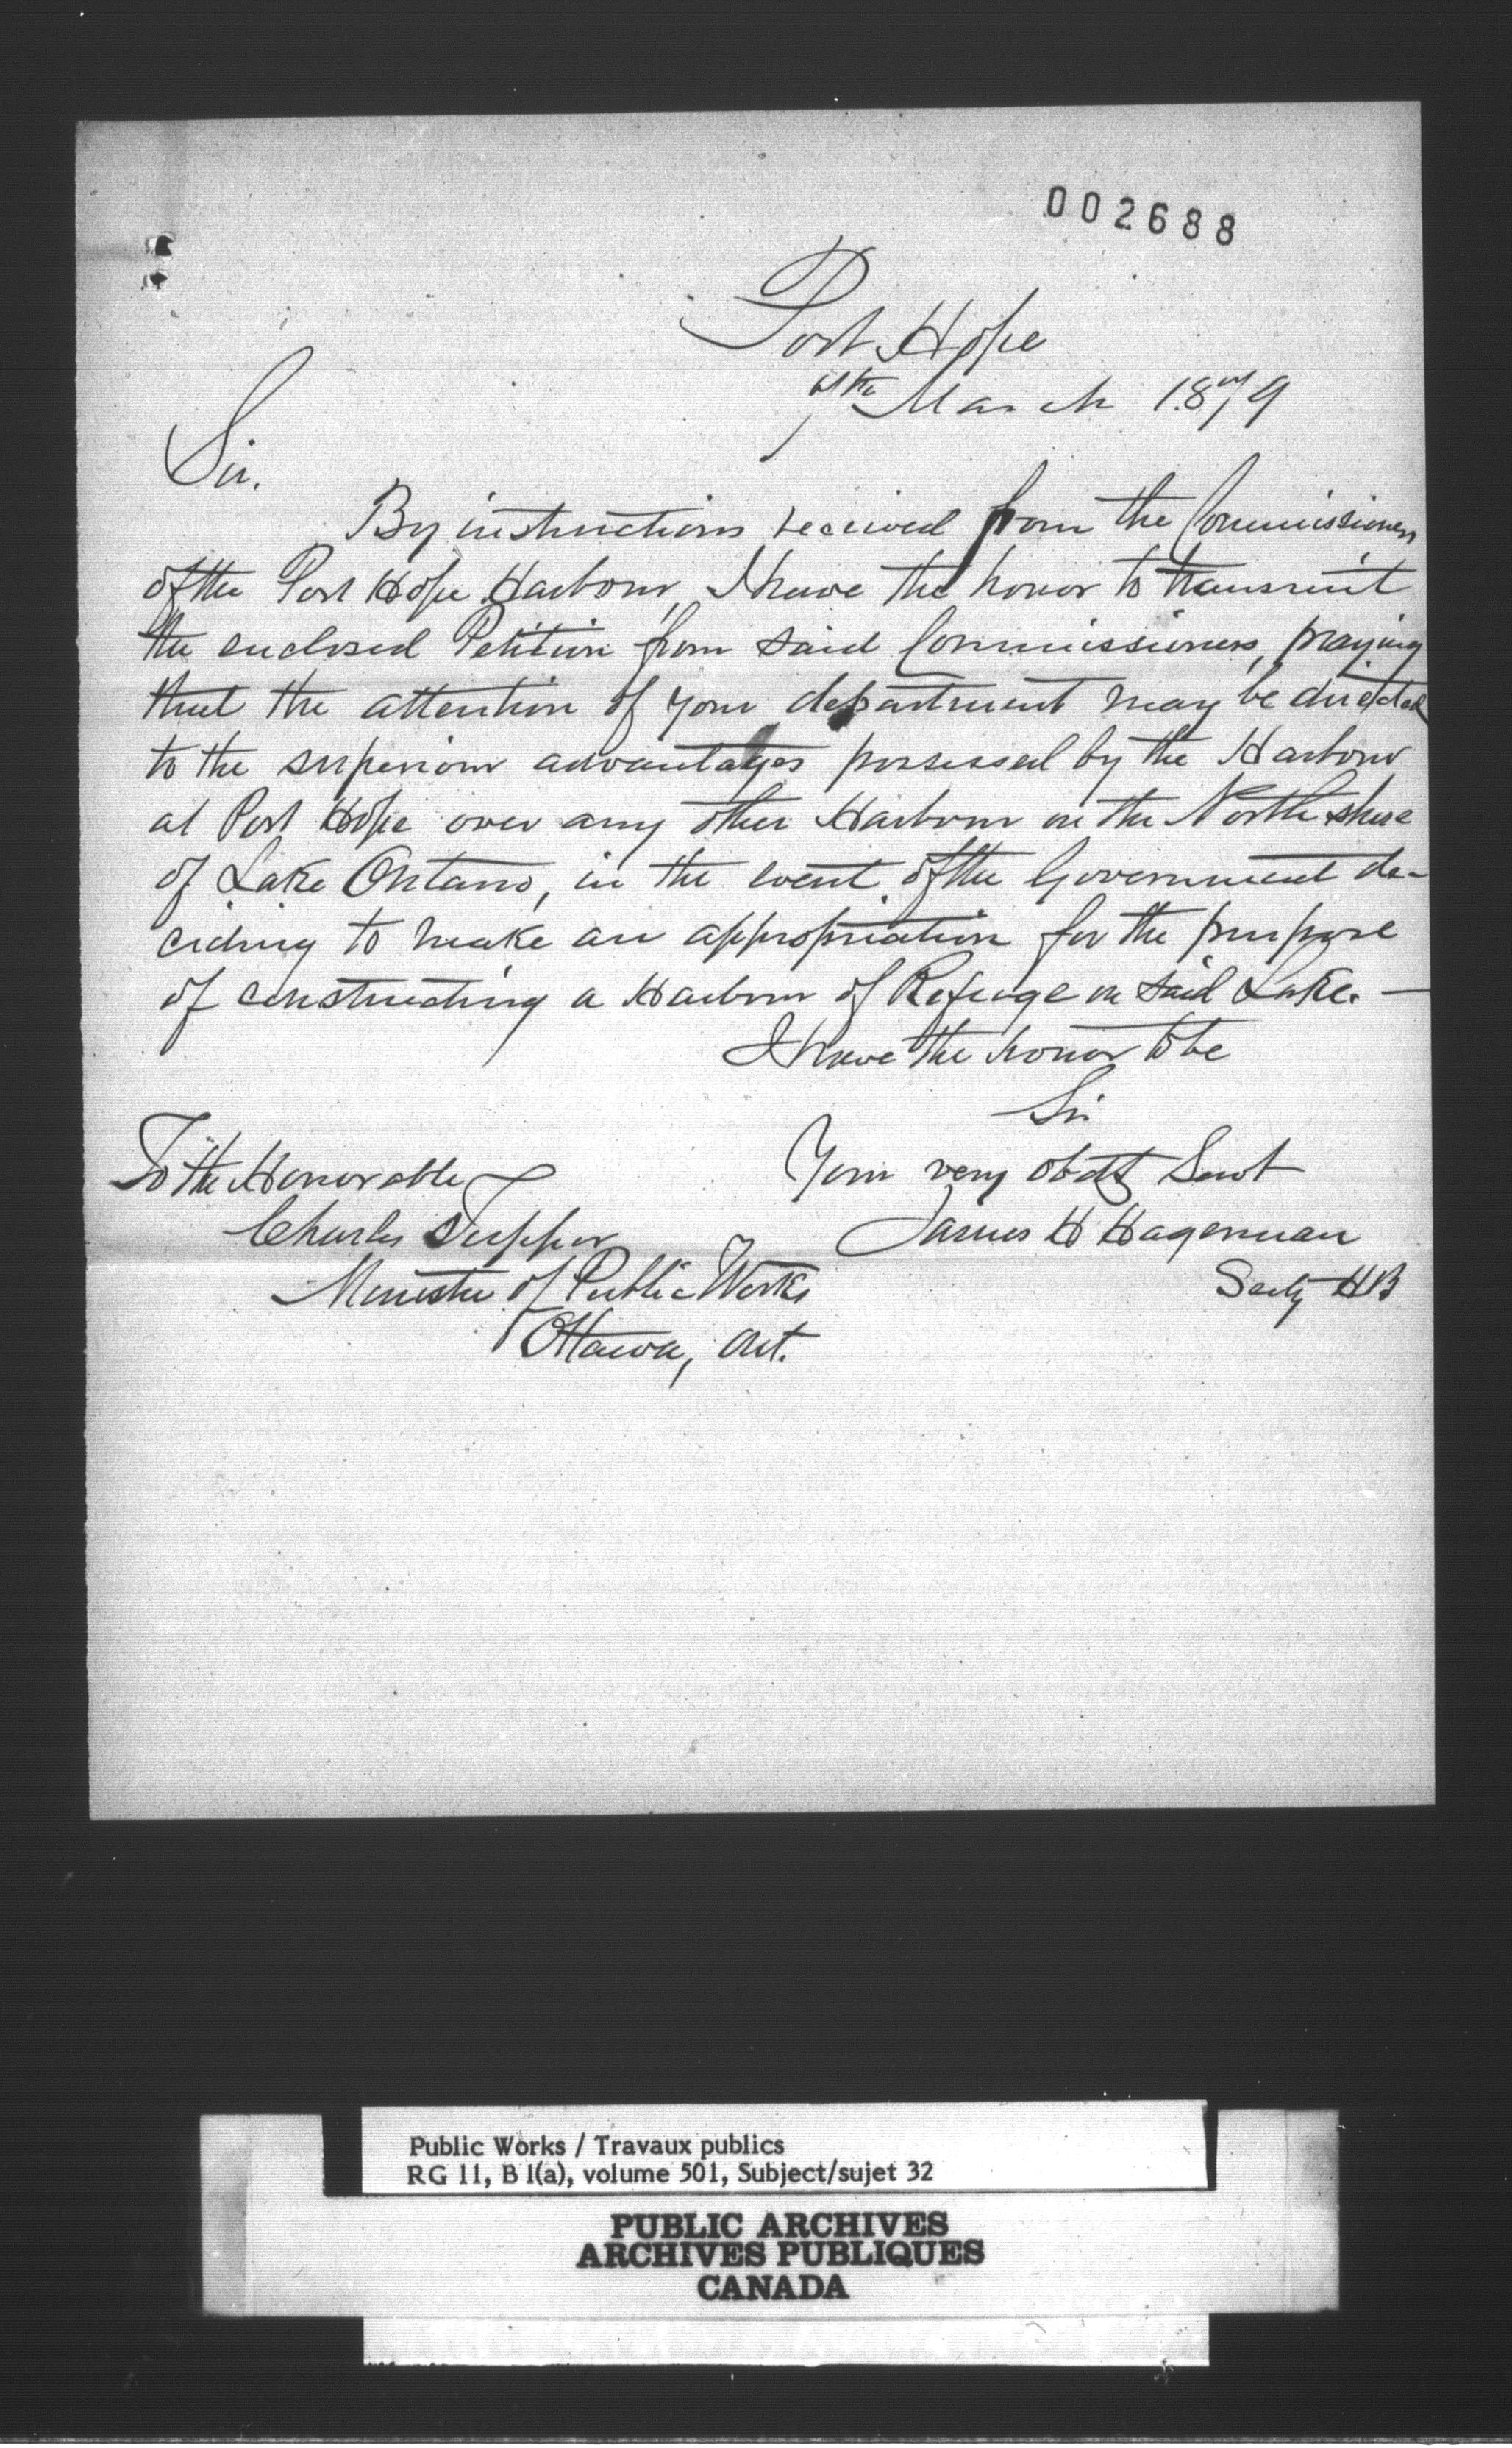 002688
Port Hope
7th March 1879
Sir.
By instructions received from the Commissioners
of the Port Hope Harbour, I have the honor to transmit
the enclosed Petition from said Commissioners, praying
that the attention of your department may be directed
to the superiour advantages possessed by the Harbour
at Port Hope over any other Harbour on the North shore
of Lake Ontario, in the event of the Government de-
ciding to make an appropriation for the purpose
of constructing a Harbour of Refuge on said Lake. —
I have the honor to be
Sir
Your very obdt Servt
James H Hagerman
Secty HB
To the Honorable
Charles Tupper
Minister of Public Works
Ottawa, Ont.
Public Works / Travaux publics
RG 11, B 1(a), volume 501, Subject/sujet 32
PUBLIC ARCHIVES
ARCHIVES PUBLIQUES
CANADA